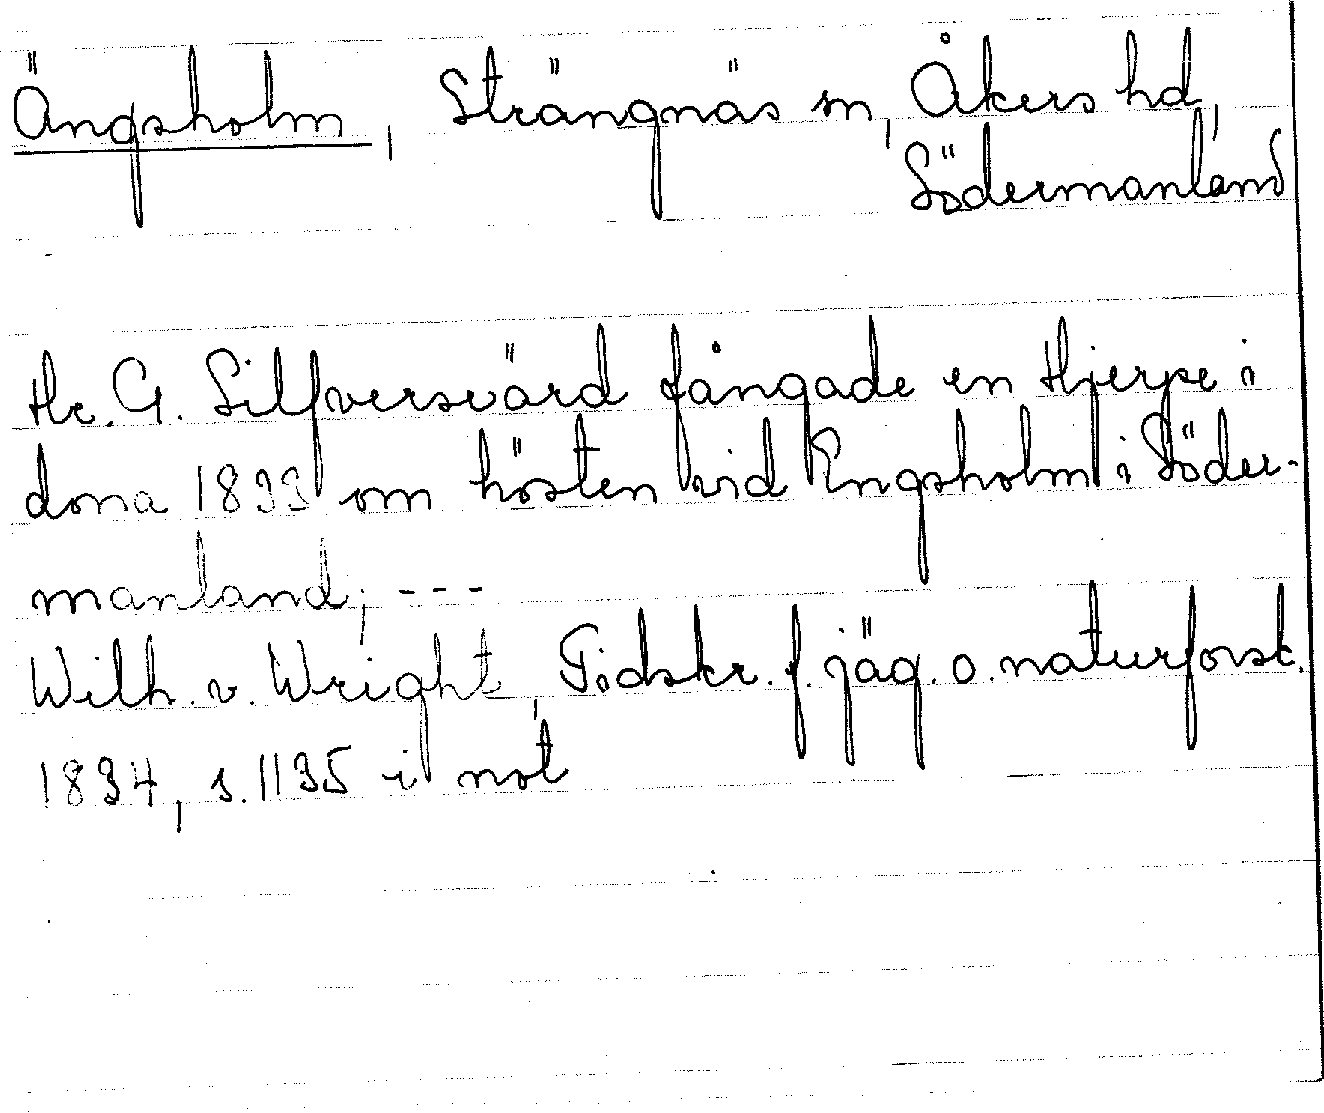 Ängsholm, Strängnäs sn, Åkers hd,
Södermanland
Hr. G. Silfversvärd fångade en Hjerpe i
dona 1833 om hösten vid Engsholm i Söder-
manland; ---
Wilh. v. Wright, Tidskr. f. jäg. o. naturforsk.
1834, s. 1135 i not